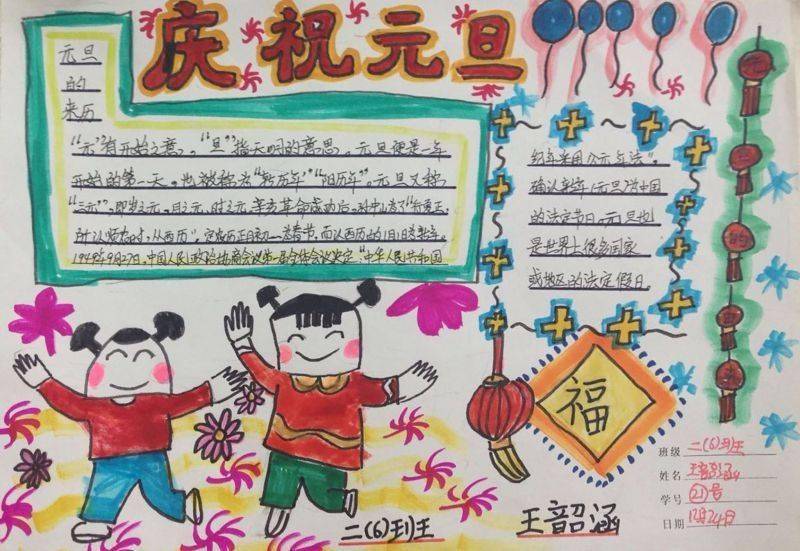 庆祝元旦
元旦
的
来历
"元"有开始之意，"旦"指天明的意思。元旦便是一年
开始的第一天，也被称为"新历年""阳历年"。元旦又称
"三元"，即岁之元、月之元、时之元。辛亥革命成功后，孙中山为了"行夏正，
所以顺农时，从西历"，定农历正月初一为春节，而以西历的1月1日为新年。
1949年9月27日，中国人民政治协商会议第一届全体会议决定"中华人民共和国
纪年采用公元年法"。
确认新年（元旦）为中国
的法定节日，元旦也
是世界上很多国家
或地区的法定假日
福
班级 二(6)班
姓名 王韶涵
学号 (21)号
日期 12月24日
二(6)班
王韶涵